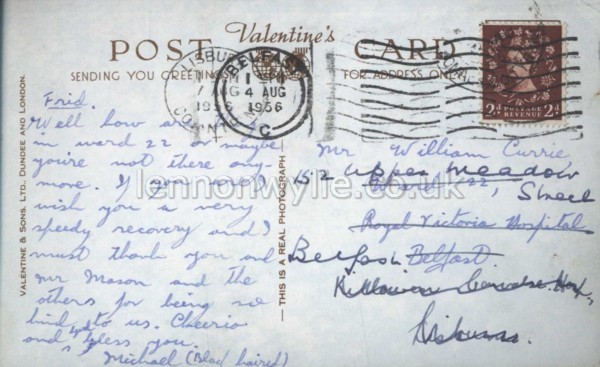 Valentine's
POST CARD
SENDING YOU GREETINGS
FOR ADDRESS ONLY
LISBURN
7 AUG
1956
CO. ANTRIM
BELFAST
4 AUG
1956
C
2d POSTAGE REVENUE 2d
VALENTINE & SONS. LTD. DUNDEE AND LONDON.
THIS IS A REAL PHOTOGRAPH
Frid.
Well how are
in ward 22 or maybe
you're not there any-
more. If so
wish you a very
speedy recovery and I
must thank you and
Mr Mason and the
others for being so
kind to us. Cheerio
and God bless you.
Michael (Black haired)
Mr William Currie,
152 Upper Meadow
Ward 22, Street
Royal Victoria Hospital
Belfast Belfast.
Killowen Hosp,
Lisburn.
lennonwylie.co.uk